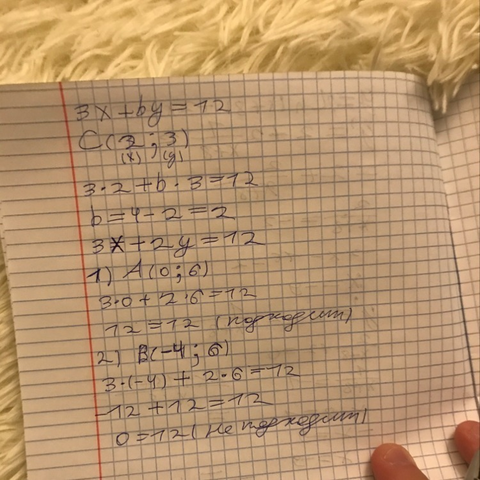 3x+by=12
C(2;3)
(x) (y)
3·2+b·3=12
b=4-2=2
3x+2y=12
1) A(0;6)
3·0+2·6=12
12=12 (подходит)
2) B(-4;6)
3·(-4)+2·6=12
-12+12=12
0=12 (не подходит)